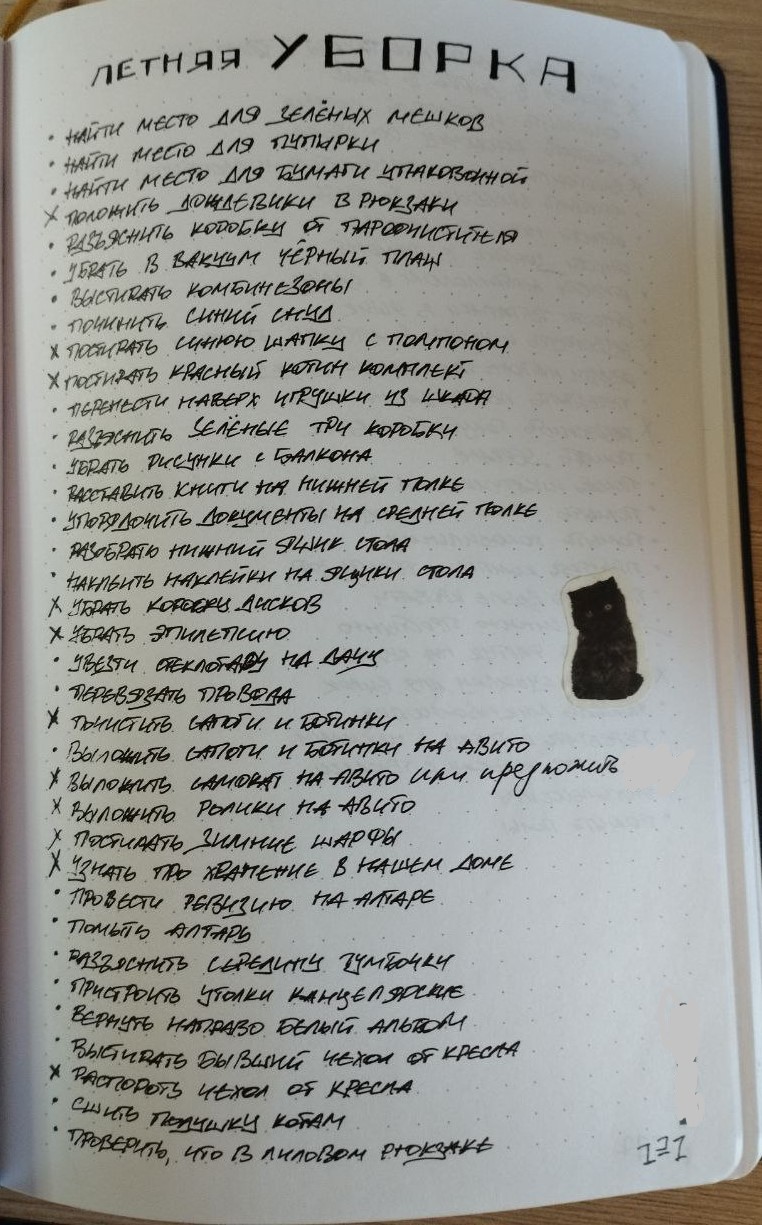 ЛЕТНЯЯ УБОРКА
• НАЙТИ МЕСТО ДЛЯ ЗЕЛЁНЫХ МЕШКОВ
• НАЙТИ МЕСТО ДЛЯ ПУПЫРКИ
• НАЙТИ МЕСТО ДЛЯ БУМАГИ УПАКОВОЧНОЙ
× ПОЛОЖИТЬ ДОЖДЕВИКИ В РЮКЗАКИ
• РАЗЪЯСНИТЬ КОРОБКУ ОТ ПАРООЧИСТИТЕЛЯ
• УБРАТЬ В ВАКУУМ ЧЁРНЫЙ ПЛАЩ
• ВЫСТИРАТЬ КОМБИНЕЗОНЫ
• ПОЧИНИТЬ СИНИЙ СНУД
× ПОСТИРАТЬ СИНЮЮ ШАПКУ С ПОМПОНОМ
× ПОСТИРАТЬ КРАСНЫЙ КОТИН КОМПЛЕКТ
• ПЕРЕНЕСТИ НАВЕРХ ИГРУШКИ ИЗ ШКАФА
• РАЗЪЯСНИТЬ ЗЕЛЁНЫЕ ТРИ КОРОБКИ
• УБРАТЬ РИСУНКИ С БАЛКОНА
• РАССТАВИТЬ КНИГИ НА НИЖНЕЙ ПОЛКЕ
• УПОРЯДОЧИТЬ ДОКУМЕНТЫ НА СРЕДНЕЙ ПОЛКЕ
• РАЗОБРАТЬ НИЖНИЙ ЯЩИК СТОЛА
• НАКЛЕИТЬ НАКЛЕЙКИ НА ЯЩИКИ СТОЛА
× УБРАТЬ КОРОБКУ ДИСКОВ
× УБРАТЬ ЭПИЛЕПСИЮ
• УВЕЗТИ СТЕКЛОТАРУ НА ДАЧУ
• ПЕРЕВЯЗАТЬ ПРОВОДА
× ПОЧИСТИТЬ САПОГИ И БОТИНКИ
• ВЫЛОЖИТЬ САПОГИ И БОТИНКИ НА АВИТО
× ВЫЛОЖИТЬ САМОКАТ НА АВИТО или предложить
× ВЫЛОЖИТЬ РОЛИКИ НА АВИТО
× ПОСТИРАТЬ ЗИМНИЕ ШАРФЫ
× УЗНАТЬ ПРО ХРАНЕНИЕ В НАШЕМ ДОМЕ
• ПРОВЕСТИ РЕВИЗИЮ НА АЛТАРЕ
• ПОМЫТЬ АЛТАРЬ
• РАЗЪЯСНИТЬ СЕРЕДИНУ ТУМБОЧКИ
• ПРИСТРОИТЬ УГОЛКИ КАНЦЕЛЯРСКИЕ
• ВЕРНУТЬ НАПРАВО БЕЛЫЙ АЛЬБОМ
• ВЫСТИРАТЬ БЫВШИЙ ЧЕХОЛ ОТ КРЕСЛА
× РАСПОРОТЬ ЧЕХОЛ ОТ КРЕСЛА
• СШИТЬ ПОДУШКУ КОТАМ
• ПРОВЕРИТЬ, ЧТО В ЛИЛОВОМ РЮКЗАКЕ